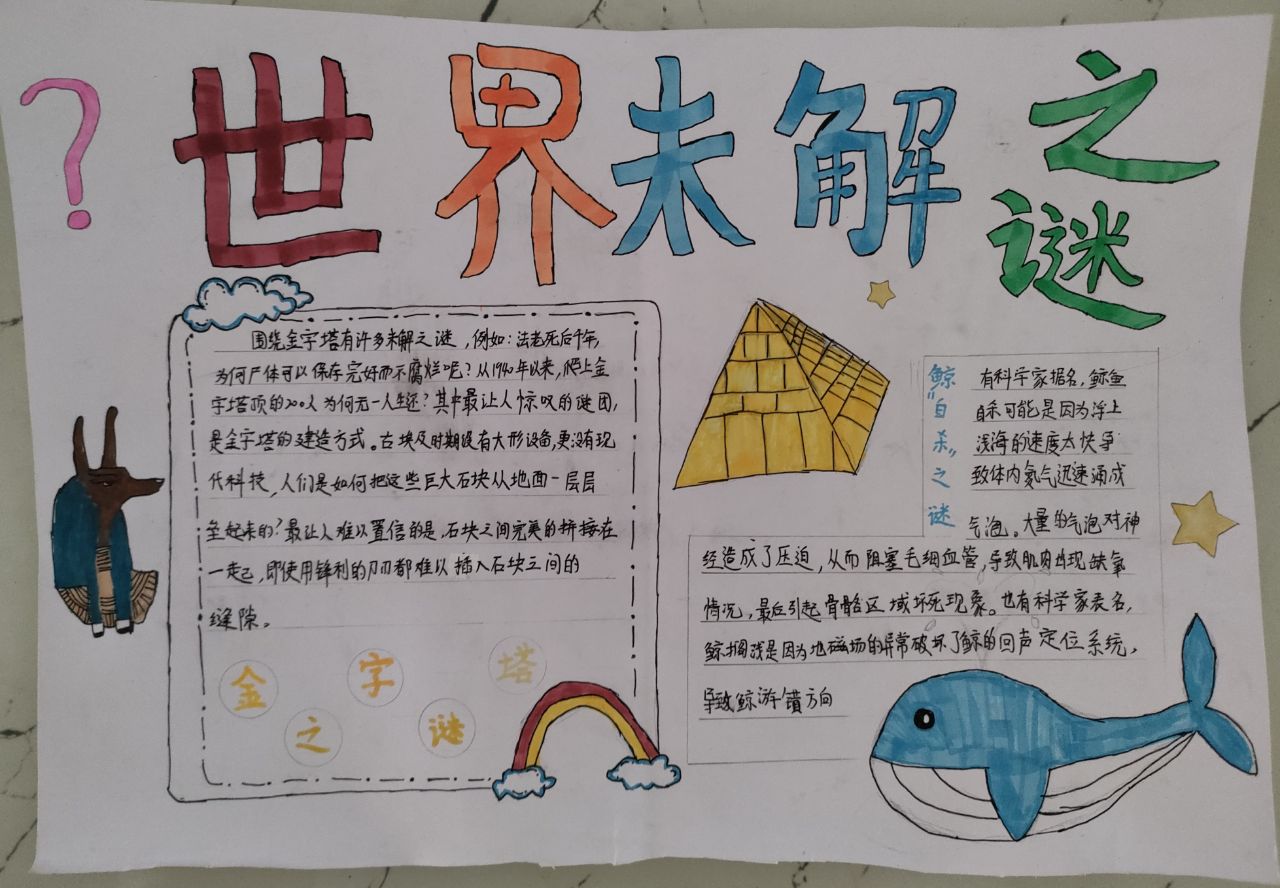 ?
世界未解之谜
围绕金字塔有许多未解之谜,例如:法老死后千年,
为何尸体可以保存完好而不腐烂呢?从1940年以来,爬上金
字塔顶的200人为何无一人生还?其中最让人惊叹的谜团,
是金字塔的建造方式。古埃及时期没有大形设备,更没有现
代科技,人们是如何把这些巨大石块从地面一层层
垒起来的?最让人难以置信的是,石块之间完美的拼接在
一起,即使用锋利的刀刃都难以插入石块之间的
缝隙。
金字塔
之谜
鲸"自杀"之谜
有科学家据名,鲸鱼
自杀可能是因为浮上
浅海的速度太快争
致体内氮气迅速涌成
气泡。大量的气泡对神
经造成了压迫,从而阻塞毛细血管,导致肌肉出现缺氧
情况,最后引起骨骼区域坏死现象。也有科学家表名,
鲸搁浅是因为地磁场的异常破坏了鲸的回声定位系统,
导致鲸游错方向